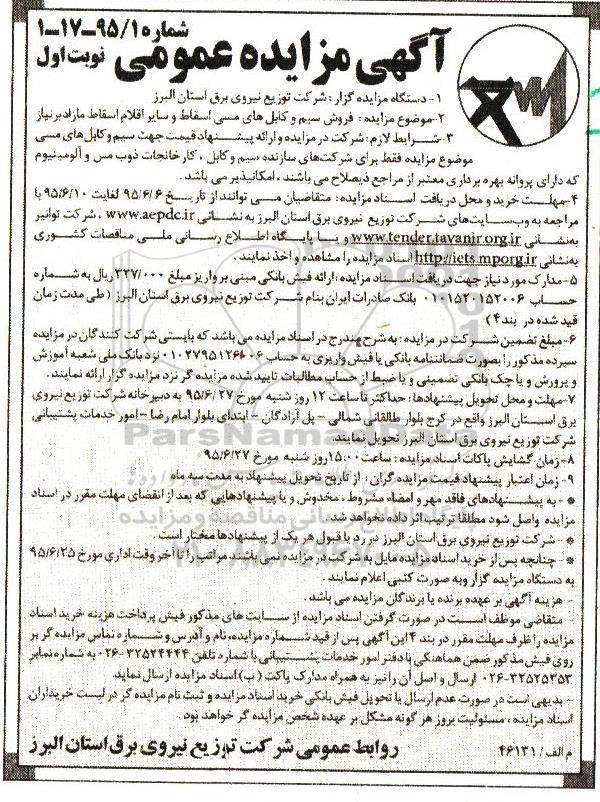 شماره ۹۵/۱-۱۷-۱
آگهی مزایده عمومی
نوبت اول
۱- دستگاه مزایده گزار: شرکت توزیع نیروی برق استان البرز
۲- موضوع مزایده: فروش سیم و کابل های مسی اسقاط و سایر اقلام اسقاط مازاد بر نیاز
۳- شرایط لازم: شرکت در مزایده و ارائه پیشنهاد قیمت جهت سیم و کابل های مسی
موضوع مزایده فقط برای شرکت‌های سازنده سیم و کابل، کارخانجات ذوب مس و آلومینیوم
که دارای پروانه بهره برداری معتبر از مراجع ذیصلاح می باشند، امکانپذیر می باشد.
۴- مهلت خرید و محل دریافت اسناد مزایده: متقاضیان می توانند از تاریخ ۹۵/۶/۶ لغایت ۹۵/۶/۱۰ با
مراجعه به وب سایت‌های شرکت توزیع نیروی برق استان البرز به نشانی www.aepdc.ir، شرکت توانیر
به‌نشانی www.tender.tavanir.org.ir و یا پایگاه اطلاع رسانی ملی مناقصات کشوری
به‌نشانی http://iets.mporg.ir اسناد مزایده را مشاهده و اخذ نمایند.
۵- مدارک مورد نیاز جهت دریافت اسناد مزایده: ارائه فیش بانکی مبنی بر واریز مبلغ ۳۲۷/۰۰۰ ریال به شماره
حساب ۰۱۰۱۵۲۰۱۵۲۰۰۶ بانک صادرات ایران بنام شرکت توزیع نیروی برق استان البرز (طی مدت زمان
قید شده در بند ۴)
۶- مبلغ تضمین شرکت در مزایده: به شرح مندرج در اسناد مزایده می باشد که بایستی شرکت کنندگان در مزایده
سپرده مذکور را بصورت ضمانتنامه بانکی یا فیش واریزی به حساب نزد بانک ملی شعبه آموزش
و پرورش و یا چک بانکی تضمینی و یا ضبط از حساب مطالبات تایید شده مزایده گر نزد مزایده گزار ارائه نمایند.
۷- مهلت و محل تحویل پیشنهادها: حداکثر تا ساعت ۱۲ روز شنبه مورخ ۹۵/۶/۲۷ به دبیرخانه شرکت توزیع نیروی
برق استان البرز واقع در کرج بلوار طالقانی شمالی - پل آزادگان - ابتدای بلوار امام رضا - امور خدمات پشتیبانی
شرکت توزیع نیروی برق استان البرز تحویل نمایند.
۸- زمان گشایش پاکات اسناد مزایده: ساعت ۱۵:۰۰ روز شنبه مورخ ۹۵/۶/۲۷
۹- زمان اعتبار پیشنهاد قیمت مزایده گران: از تاریخ تحویل پیشنهاد به مدت سه ماه
* - به پیشنهادهای فاقد مهر و امضاء مشروط، مخدوش و یا پیشنهادهایی که بعد از انقضای مهلت مقرر در اسناد
مزایده واصل شود مطلقا ترتیب اثر داده نخواهد شد.
* - شرکت توزیع نیروی برق استان البرز در رد یا قبول هر یک از پیشنهادها مختار است.
* - چنانچه پس از خرید اسناد مزایده مایل به شرکت در مزایده نمی باشند مراتب را تا آخر وقت اداری مورخ ۹۵/۶/۲۵
به دستگاه مزایده گزار و به صورت کتبی اعلام نمایند.
- هزینه آگهی بر عهده برنده یا برندگان مزایده می باشد.
متقاضی موظف است در صورت گرفتن اسناد مزایده از سایت های مذکور فیش پرداخت هزینه خرید اسناد
مزایده را ظرف مهلت مقرر در بند ۴ این آگهی پس از قید شماره مزایده، نام و آدرس و شماره تماس مزایده گر بر
روی فیش مذکور ضمن هماهنگی با دفتر امور خدمات پشتیبانی با شماره تلفن ۳۲۵۲۴۴۴۴-۰۲۶ به شماره نمابر
۳۲۵۲۵۳۵۳-۰۲۶ ارسال و اصل آن را نیز به همراه مدارک پاکت (ب) اسناد مزایده ارسال نماید.
- بدیهی است در صورت عدم ارسال یا تحویل فیش بانکی خرید اسناد مزایده و ثبت نام مزایده گر در لیست خریداران
اسناد مزایده، مسئولیت بروز هر گونه مشکل بر عهده شخص مزایده گر خواهد بود.
روابط عمومی شرکت توزیع نیروی برق استان البرز
م الف / ۴۶۱۳۱